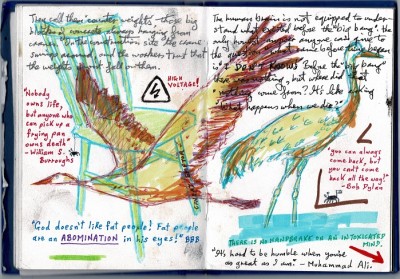 They call them "counter weights" - those big
blocks of concrete always hanging from
cranes. On the construction site the crane
swings around and the workers trust that
the weights won't fall on them.
HIGH
VOLTAGE!
"Nobody
owns life,
but anyone who
can pick up a
frying pan
owns death"
- William S.
Burroughs
"God doesn't like fat people! Fat people
are an ABOMINATION in his eyes!" BBB
The human brain is not equipped to under-
stand what existed before the "big bang". the
before the "big bang"
but where did that
come from? It's like asking
"what happens when we die?"
"you can always
come back, but
you can't come
back all the way!"
- Bob Dylan
THERE IS NO HANDBRAKE ON AN INTOXICATED
MIND.
"It's hard to be humble when you're
as great as I am" - Mohammad Ali